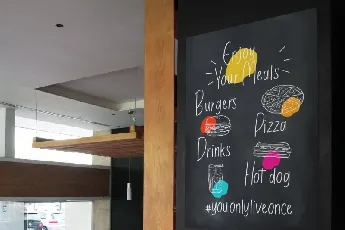 Enjoy
Your Meals
Burgers
Pizza
Drinks
Hot dog
#youonlyliveonce